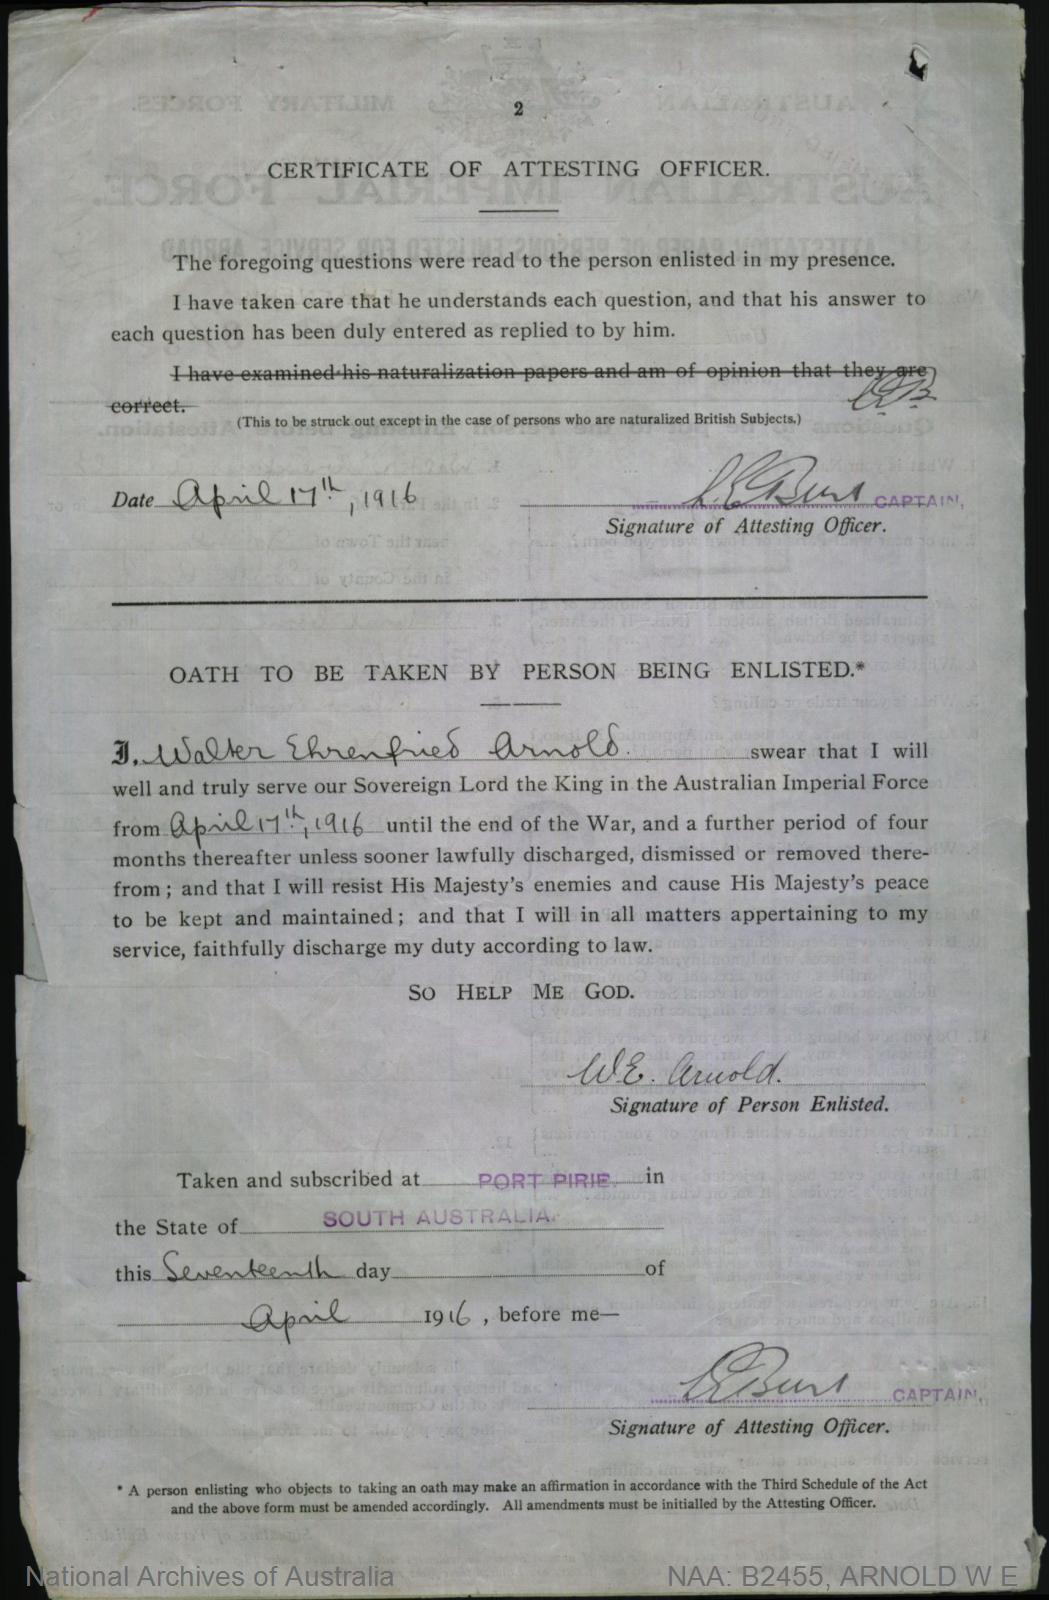 2
CERTIFICATE OF ATTESTING OFFICER.
The foregoing questions were read to the person enlisted in my presence.
I have taken care that he understands each question, and that his answer to
each question has been duly entered as replied to by him.
I have examined his naturalization papers and am of opinion that they are
correct.
(This to be struck out except in the case of persons who are naturalized British Subjects.)
Date April 17th, 1916 CAPTAIN,
Signature of Attesting Officer.
OATH TO BE TAKEN BY PERSON BEING ENLISTED.*
I, Walter Ehrenfried Arnold. swear that I will
well and truly serve our Sovereign Lord the King in the Australian Imperial Force
from April 17th, 1916 until the end of the War, and a further period of four
months thereafter unless sooner lawfully discharged, dismissed or removed there-
from; and that I will resist His Majesty's enemies and cause His Majesty's peace
to be kept and maintained; and that I will in all matters appertaining to my
service, faithfully discharge my duty according to law.
SO HELP ME GOD.
W.E. Arnold.
Signature of Person Enlisted.
Taken and subscribed at PORT PIRIE. in
the State of SOUTH AUSTRALIA.
this Seventeenth day of
April 1916, before me—
CAPTAIN,
Signature of Attesting Officer.
* A person enlisting who objects to taking an oath may make an affirmation in accordance with the Third Schedule of the Act
and the above form must be amended accordingly. All amendments must be initialled by the Attesting Officer.
National Archives of Australia NAA: B2455, ARNOLD W E